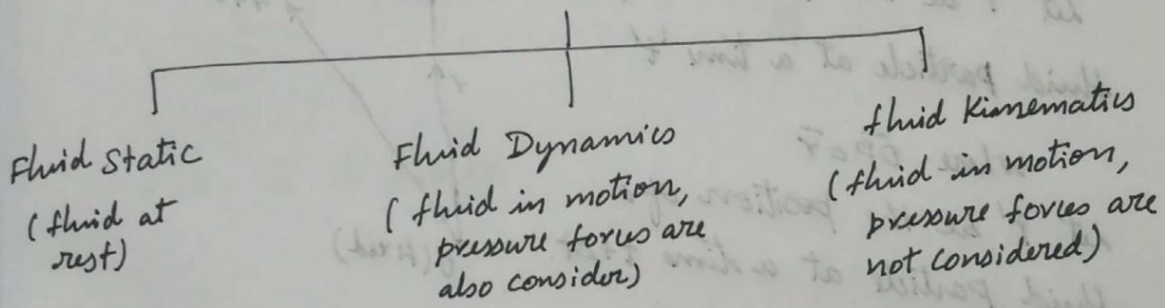 Fluid Static
(fluid at
rest)
Fluid Dynamics
(fluid in motion,
pressure forces are
also consider)
fluid Kinematics
(fluid in motion,
pressure forces are
not considered)